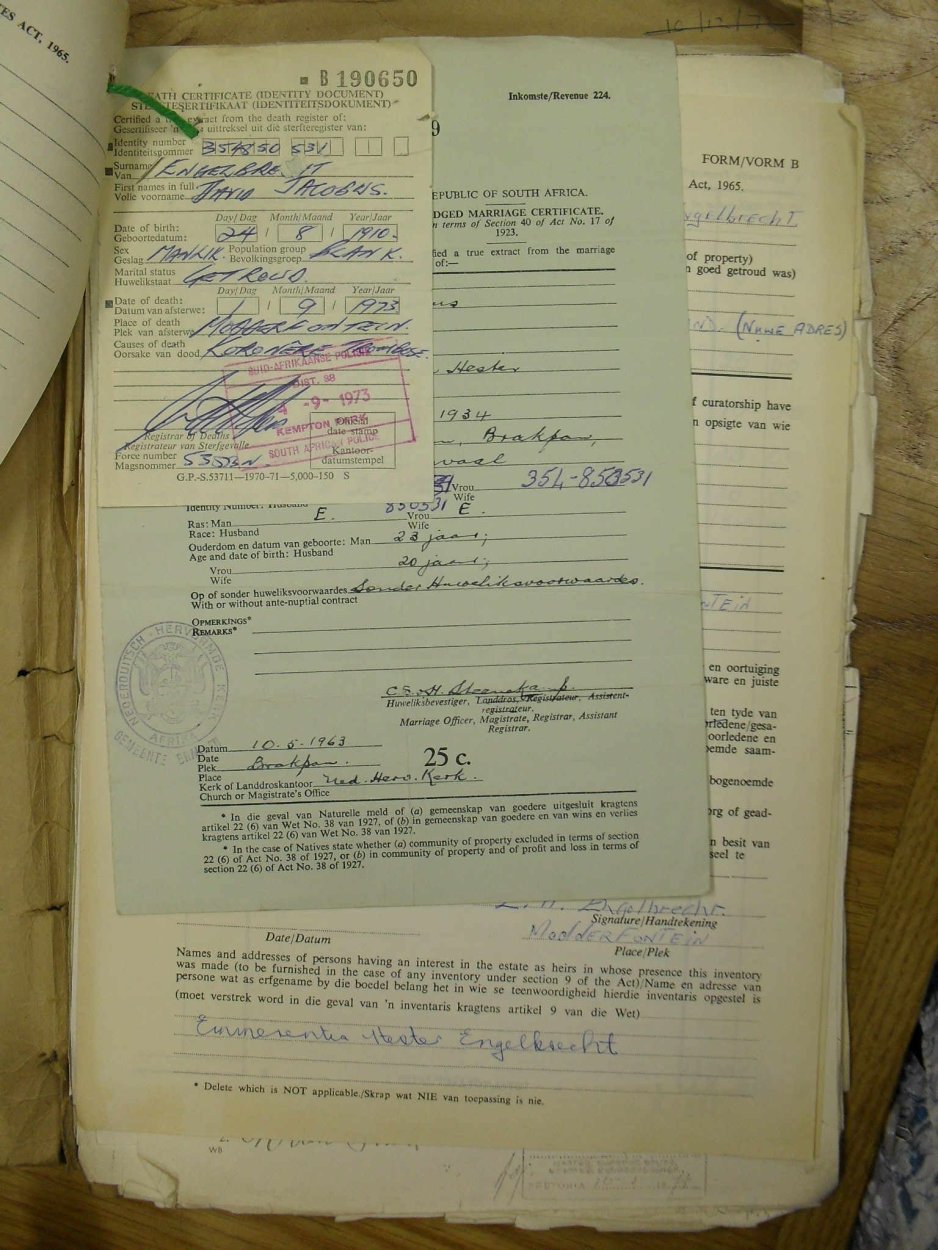 TES ACT, 1965.
B 190650
DEATH CERTIFICATE (IDENTITY DOCUMENT)
(IDENTITEITSDOKUMENT)
Certified a extract from the death register of:
Gesertifiseer 'n uittreksel uit die sterfteregister van:
Identity number
Identiteitsnommer
Surname
Van ENGELBRE
First names in full
Volle voorname DAVID JACOBUS.
Day/Dag Month/Maand Year/Jaar
Date of birth:
Geboortedatum: 24 / 8 / 1910.
Sex Population group
Geslag MANLIK. Bevolkingsgroep BLANK.
Marital status
Huwelikstaat GETROUD
Day/Dag Month/Maand Year/Jaar
Date of death:
Datum van afsterwe: 1 / 9 / 1973
Place of death
Plek van afsterwe MODDERFONTEIN.
Causes of death
Oorsake van dood KORONÊRE TROMBOSE.
SUID-AFRIKAANSE POLISIE
DIST. 38
4 -9- 1973
KEMPTON PARK
SOUTH AFRICAN POLICE
Official
date stamp
Kantoor-
datumstempel
Registrar of Deaths
Registrateur van Sterfgevalle
Force number
Magsnommer
G.P.-S.53711—1970-71—5,000-150 S
Inkomste/Revenue 224.
9
EPUBLIC OF SOUTH AFRICA.
DGED MARRIAGE CERTIFICATE.
n terms of Section 40 of Act No. 17 of
1923.
fied a true extract from the marriage
of:—
us
Hester
1934
Brakpan,
vaal
Vrou
Wife
Identity Number: Husband
Ras: Man E. Vrou E.
Race: Husband Wife
Ouderdom en datum van geboorte: Man 23 jaar;
Age and date of birth: Husband
Vrou 20 jaar;
Wife
Op of sonder huweliksvoorwaardes Sonder Huweliksvoorwaardes.
With or without ante-nuptial contract
OPMERKINGS*
REMARKS*
NEDERDUITSCH HERVORMDE KERK
AFRIKA
GEMEENTE
Huweliksbevestiger, Landdros, Registrateur, Assistent-
registrateur.
Marriage Officer, Magistrate, Registrar, Assistant
Registrar.
Datum 10.5.1963
Date
Plek Brakpan. 25 c.
Place
Kerk of Landdroskantoor Ned. Herv. Kerk.
Church or Magistrate's Office
* In die geval van Naturelle meld of (a) gemeenskap van goedere uitgesluit kragtens
artikel 22 (6) van Wet No. 38 van 1927, of (b) in gemeenskap van goedere en van wins en verlies
kragtens artikel 22 (6) van Wet No. 38 van 1927.
* In the case of Natives state whether (a) community of property excluded in terms of section
22 (6) of Act No. 38 of 1927, or (b) in community of property and of profit and loss in terms of
section 22 (6) of Act No. 38 of 1927.
FORM/VORM B
Act, 1965.
ngelbrecht
of property)
n goed getroud was)
(NUWE ADRES)
f curatorship have
n opsigte van wie
NTEIN
en oortuiging
ware en juiste
ten tyde van
rledene/gesa-
oorledene en
oemde saam-
bogenoemde
org of gead-
n besit van
seel te
Engelbrecht.
Signature/Handtekening
MODDERFONTEIN
Date/Datum Place/Plek
Names and addresses of persons having an interest in the estate as heirs in whose presence this inventory
was made (to be furnished in the case of any inventory under section 9 of the Act)/Name en adresse van
persone wat as erfgename by die boedel belang het in wie se teenwoordigheid hierdie inventaris opgestel is
(moet verstrek word in die geval van 'n inventaris kragtens artikel 9 van die Wet)
Emmerentia Hester Engelbrecht
* Delete which is NOT applicable./Skrap wat NIE van toepassing is nie.
WB
PRETORIA